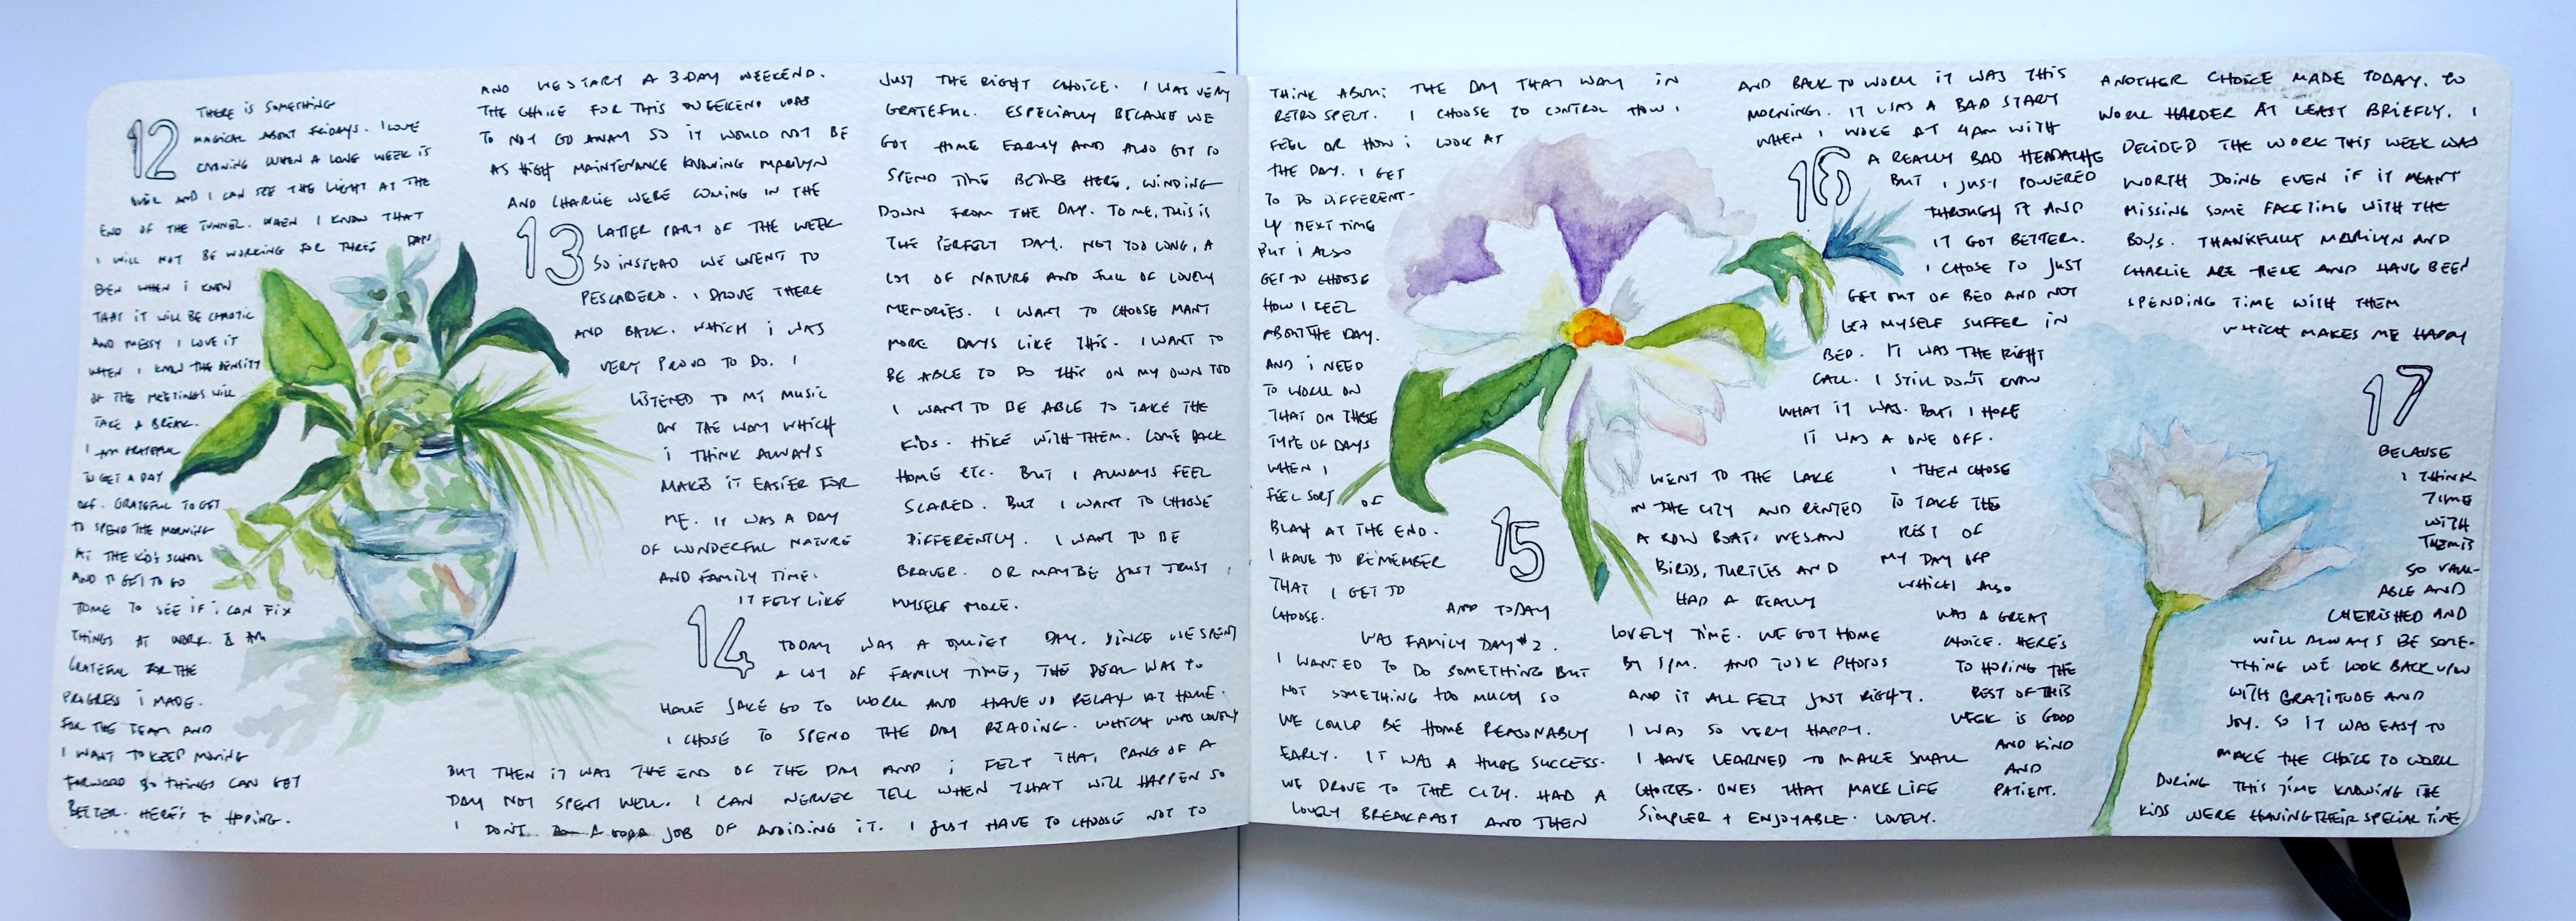 12
THERE IS SOMETHING
MAGICAL ABOUT FRIDAYS. I LOVE
EVENING WHEN A LONG WEEK IS
OVER AND I CAN SEE THE LIGHT AT THE
END OF THE TUNNEL. WHEN I KNOW THAT
I WILL NOT BE WORKING FOR THREE DAYS
EVEN WHEN I KNOW
THAT IT WILL BE CHAOTIC
AND MESSY I LOVE IT
WHEN I KNOW THE DENSITY
OF THE MEETINGS WILL
TAKE A BREAK.
I AM GRATEFUL
TO GET A DAY
OFF. GRATEFUL TO GET
TO SPEND THE MORNING
AT THE KID'S SCHOOL
AND TO GET TO GO
HOME TO SEE IF I CAN FIX
THINGS AT WORK. I AM
GRATEFUL FOR THE
PROGRESS I MADE.
FOR THE TEAM AND
I WANT TO KEEP MOVING
FORWARD SO THINGS CAN GET
BETTER. HERE'S TO HOPING.
AND WE START A 3-DAY WEEKEND.
THE CHOICE FOR THIS WEEKEND WAS
TO NOT GO AWAY SO IT WOULD NOT BE
AS HIGH MAINTENANCE KNOWING MARILYN
AND CHARLIE WERE COMING IN THE
13
LATTER PART OF THE WEEK
SO INSTEAD WE WENT TO
PESCADERO. I DROVE THERE
AND BACK. WHICH I WAS
VERY PROUD TO DO. I
LISTENED TO MY MUSIC
ON THE WAY WHICH
I THINK ALWAYS
MAKES IT EASIER FOR
ME. IT WAS A DAY
OF WONDERFUL NATURE
AND FAMILY TIME.
IT FELT LIKE
JUST THE RIGHT CHOICE. I WAS VERY
GRATEFUL. ESPECIALLY BECAUSE WE
GOT HOME EARLY AND ALSO GOT TO
SPEND TIME BEING HERE, WINDING
DOWN FROM THE DAY. TO ME, THIS IS
THE PERFECT DAY. NOT TOO LONG, A
LOT OF NATURE AND FULL OF LOVELY
MEMORIES. I WANT TO CHOOSE MANY
MORE DAYS LIKE THIS. I WANT TO
BE ABLE TO DO THIS ON MY OWN TOO
I WANT TO BE ABLE TO TAKE THE
KIDS. HIKE WITH THEM. COME BACK
HOME ETC. BUT I ALWAYS FEEL
SCARED. BUT I WANT TO CHOOSE
DIFFERENTLY. I WANT TO BE
BRAVER. OR MAYBE JUST TRUST
MYSELF MORE.
14
TODAY WAS A QUIET DAY. SINCE WE SPENT
A LOT OF FAMILY TIME, THE DEAL WAS TO
HAVE JAKE GO TO WORK AND HAVE US RELAX AT HOME.
I CHOSE TO SPEND THE DAY READING. WHICH WAS LOVELY
BUT THEN IT WAS THE END OF THE DAY AND I FELT THAT PANG OF A
DAY NOT SPENT WELL. I CAN NEVER TELL WHEN THAT WILL HAPPEN SO
I DON'T DO A GOOD JOB OF AVOIDING IT. I JUST HAVE TO CHOOSE NOT TO
THINK ABOUT THE DAY THAT WAY IN
RETROSPECT. I CHOOSE TO CONTROL HOW I
FEEL OR HOW I LOOK AT
THE DAY. I GET
TO DO DIFFERENT-
LY NEXT TIME
BUT I ALSO
GET TO CHOOSE
HOW I FEEL
ABOUT THE DAY.
AND I NEED
TO WORK ON
THAT ON THESE
TYPE OF DAYS
WHEN I
FEEL SORT OF
BLAH AT THE END.
I HAVE TO REMEMBER
THAT I GET TO
CHOOSE.
15
AND TODAY
WAS FAMILY DAY #2.
I WANTED TO DO SOMETHING BUT
NOT SOMETHING TOO MUCH SO
WE COULD BE HOME REASONABLY
EARLY. IT WAS A HUGE SUCCESS.
WE DROVE TO THE CITY. HAD A
LOVELY BREAKFAST AND THEN
WENT TO THE LAKE
IN THE CITY AND RENTED
A ROW BOAT. WE SAW
BIRDS, TURTLES AND
HAD A REALLY
LOVELY TIME. WE GOT HOME
BY 5PM. AND TOOK PHOTOS
AND IT ALL FELT JUST RIGHT.
I WAS SO VERY HAPPY.
I HAVE LEARNED TO MAKE SMALL
CHOICES. ONES THAT MAKE LIFE
SIMPLER + ENJOYABLE. LOVELY.
AND BACK TO WORK IT WAS THIS
MORNING. IT WAS A BAD START
WHEN I WOKE AT 4AM WITH
16
A REALLY BAD HEADACHE
BUT I JUST POWERED
THROUGH IT AND
IT GOT BETTER.
I CHOSE TO JUST
GET OUT OF BED AND NOT
LET MYSELF SUFFER IN
BED. IT WAS THE RIGHT
CALL. I STILL DON'T KNOW
WHAT IT WAS. BUT I HOPE
IT WAS A ONE OFF.
I THEN CHOSE
TO TAKE THE
REST OF
MY DAY OFF
WHICH ALSO
WAS A GREAT
CHOICE. HERE'S
TO HOPING THE
REST OF THIS
WEEK IS GOOD
AND KIND
AND
PATIENT.
ANOTHER CHOICE MADE TODAY. TO
WORK HARDER AT LEAST BRIEFLY. I
DECIDED THE WORK THIS WEEK WAS
WORTH DOING EVEN IF IT MEANT
MISSING SOME FACETIME WITH THE
BOYS. THANKFULLY MARILYN AND
CHARLIE ARE HERE AND HAVE BEEN
SPENDING TIME WITH THEM
WHICH MAKES ME HAPPY
17
BECAUSE
I THINK
TIME
WITH
THEM IS
SO VALU-
ABLE AND
CHERISHED AND
WILL ALWAYS BE SOME-
THING WE LOOK BACK UPON
WITH GRATITUDE AND
JOY. SO IT WAS EASY TO
MAKE THE CHOICE TO WORK
DURING THIS TIME KNOWING THE
KIDS WERE HAVING THEIR SPECIAL TIME